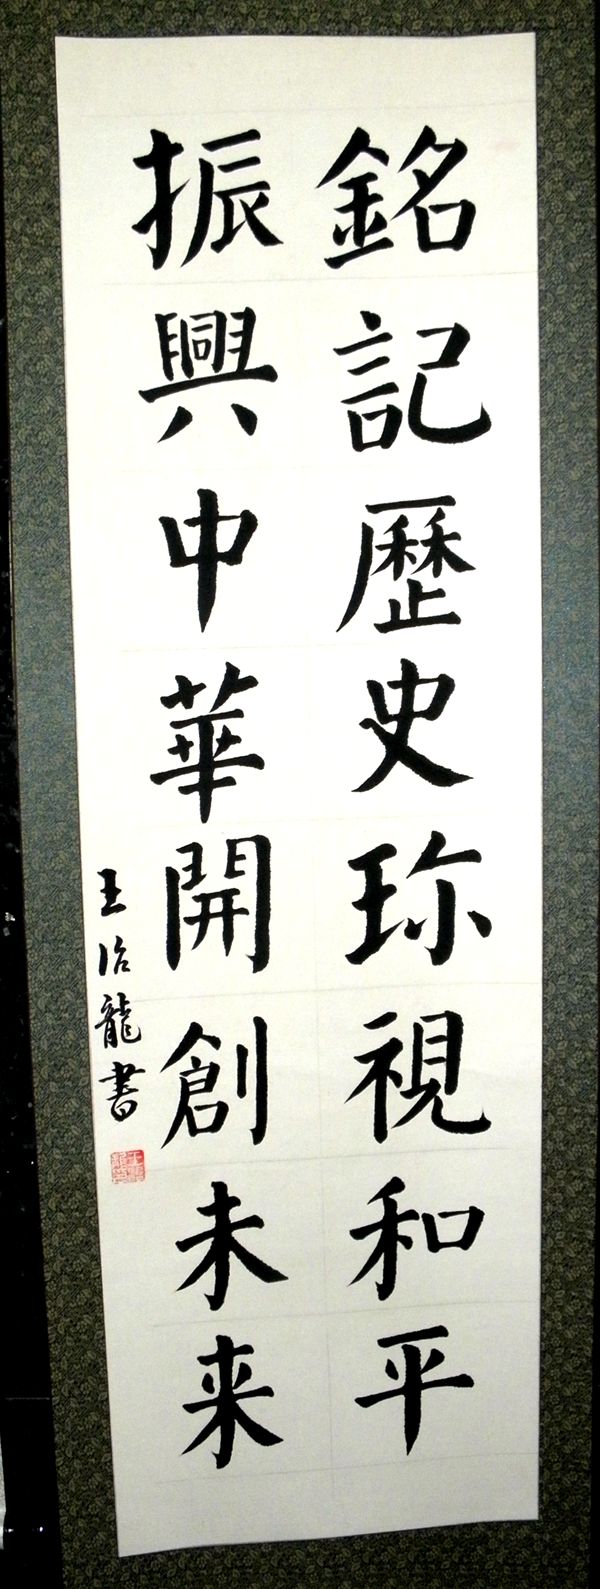 銘記歷史珎視和平
振興中華開創未来
王治龍書